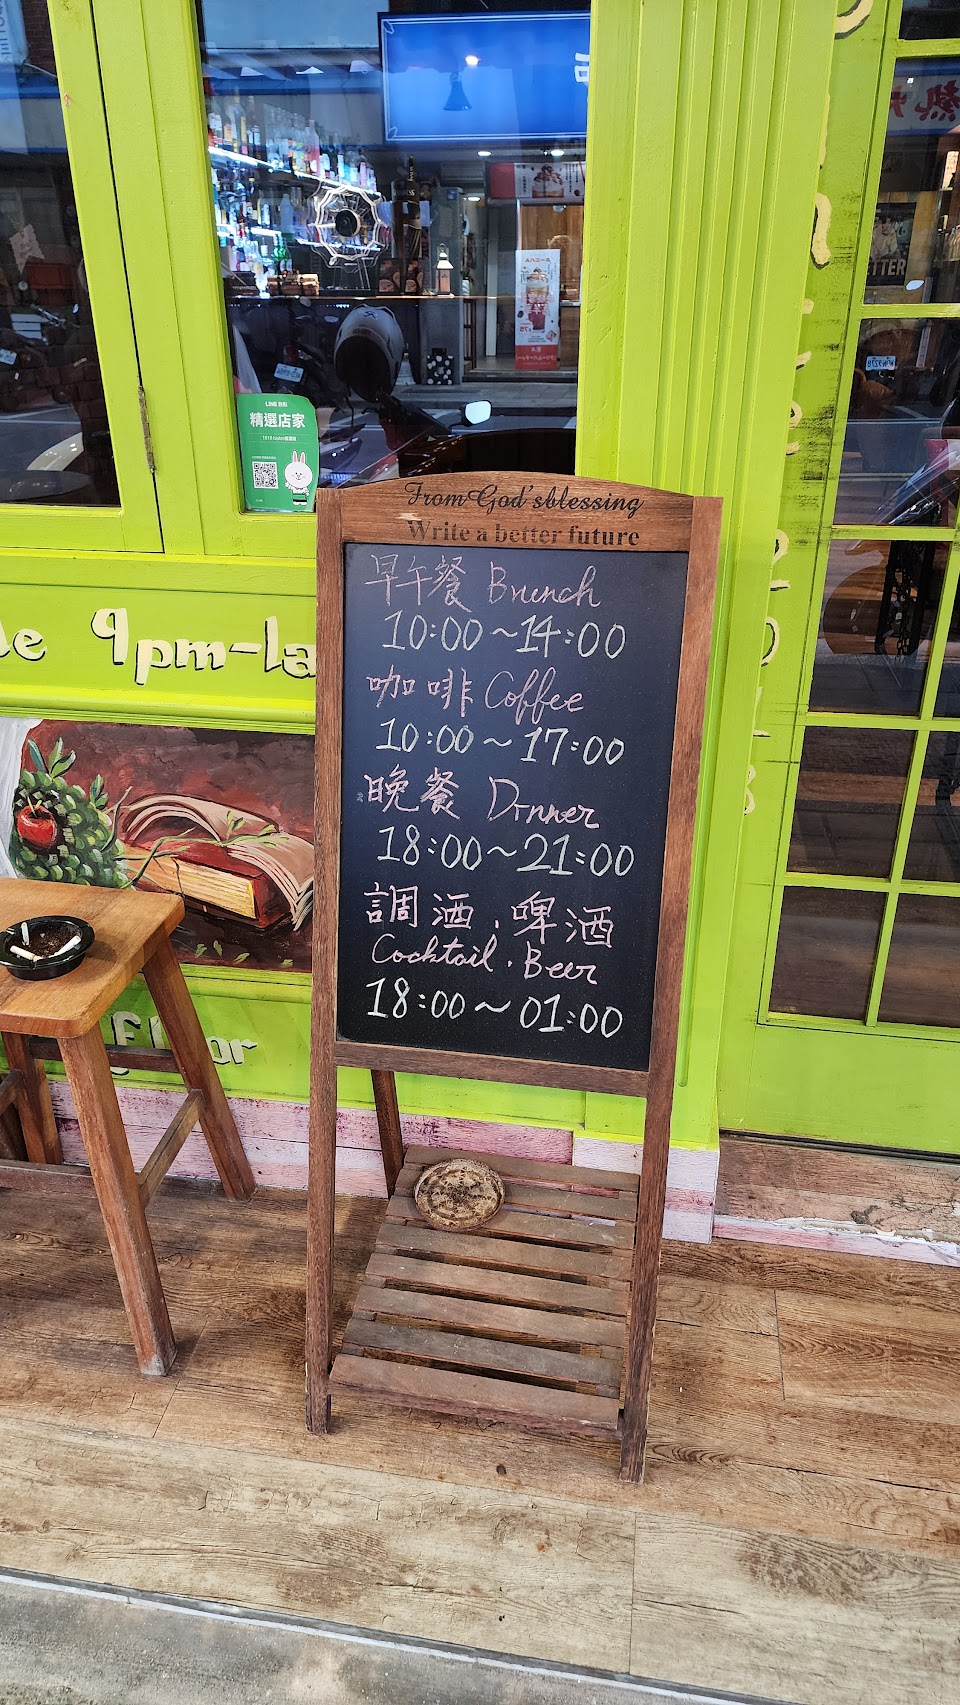 LINE 熱點
精選店家
From God's blessing
Write a better future
早午餐 Brunch
10:00~14:00
咖啡 Coffee
10:00~17:00
晚餐 Dinner
18:00~21:00
調酒.啤酒
Cocktail.Beer
18:00~01:00
9pm-la